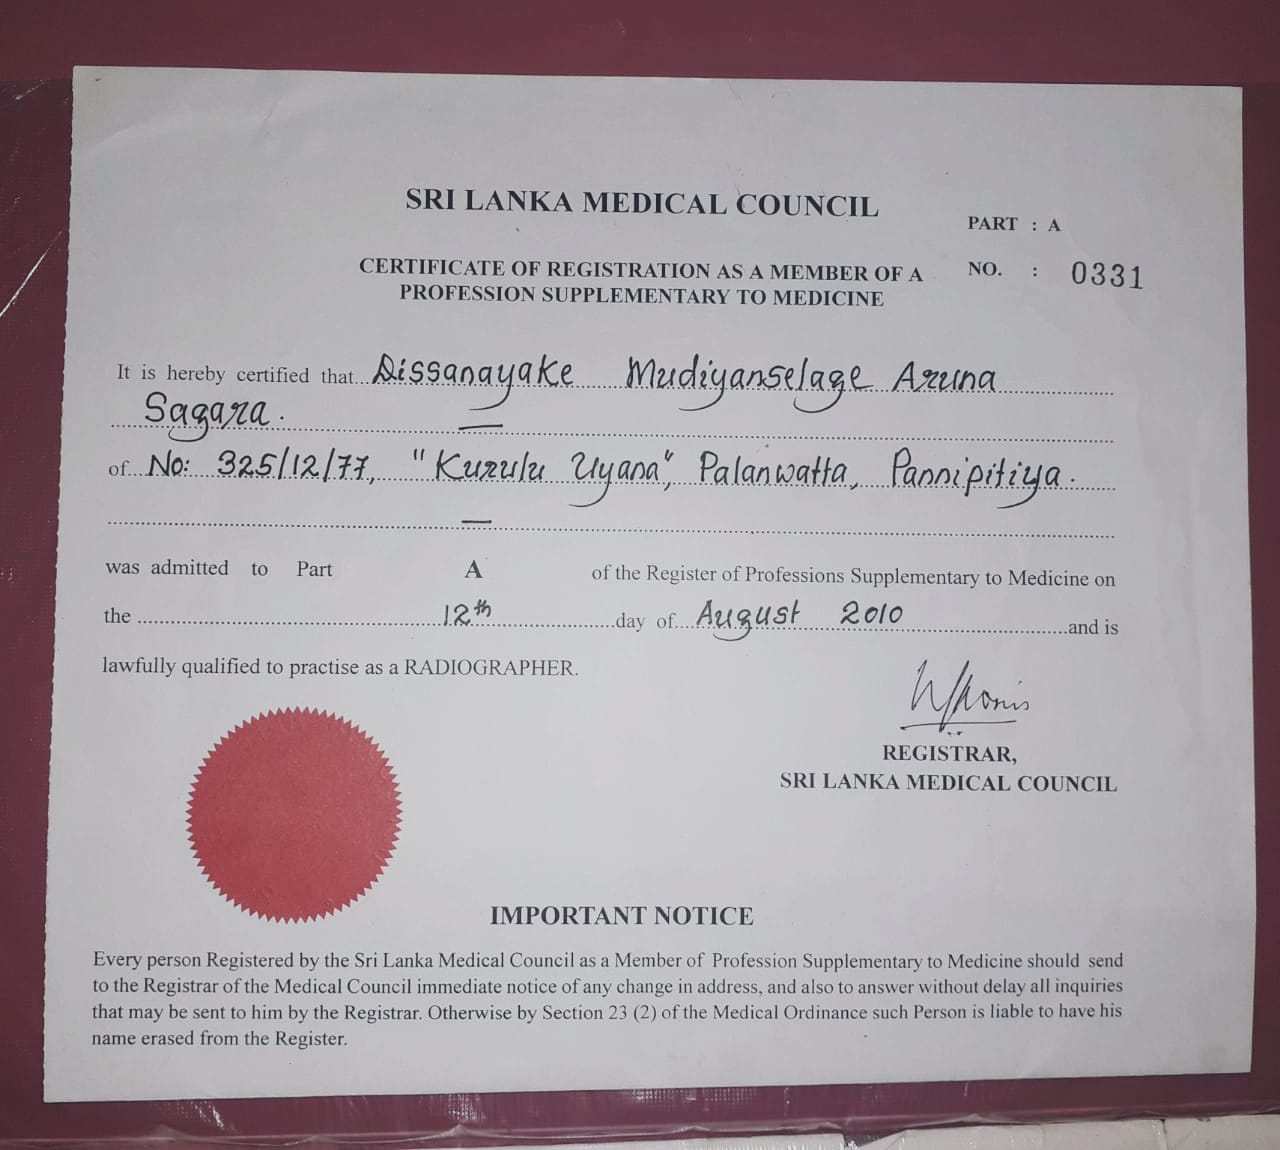 SRI LANKA MEDICAL COUNCIL
PART : A
CERTIFICATE OF REGISTRATION AS A MEMBER OF A
NO. : 0331
PROFESSION SUPPLEMENTARY TO MEDICINE
It is hereby certified that Dissanayake Mudiyanselage Aruna
Sagara.
of No: 325/12/77, "Kurulu Uyana", Palanwatta, Pannipitiya.
was admitted to Part A of the Register of Professions Supplementary to Medicine on
the 12th day of August 2010 and is
lawfully qualified to practise as a RADIOGRAPHER.
REGISTRAR,
SRI LANKA MEDICAL COUNCIL
IMPORTANT NOTICE
Every person Registered by the Sri Lanka Medical Council as a Member of Profession Supplementary to Medicine should send
to the Registrar of the Medical Council immediate notice of any change in address, and also to answer without delay all inquiries
that may be sent to him by the Registrar. Otherwise by Section 23 (2) of the Medical Ordinance such Person is liable to have his
name erased from the Register.